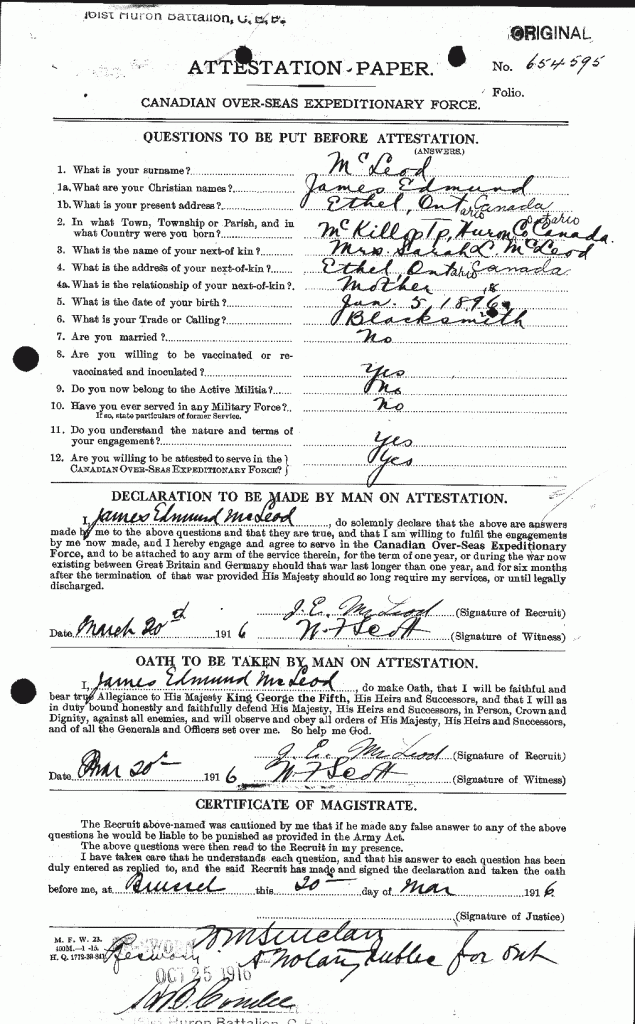 161st Huron Battalion, C. E. F.
ORIGINAL
ATTESTATION PAPER.
No. 654595
Folio.
CANADIAN OVER-SEAS EXPEDITIONARY FORCE.
QUESTIONS TO BE PUT BEFORE ATTESTATION.
(ANSWERS.)
1. What is your surname? McLeod
1a. What are your Christian names? James Edmund
1b. What is your present address? Ethel, Ontario Canada
2. In what Town, Township or Parish, and in what Country were you born? McKillop Tp, Huron Co Ontario Canada.
3. What is the name of your next-of kin? Mrs. Sarah L. McLeod
4. What is the address of your next-of-kin? Ethel Ontario Canada
4a. What is the relationship of your next-of-kin? Mother
5. What is the date of your birth? Jan. 5, 1896
6. What is your Trade or Calling? Blacksmith
7. Are you married? No
8. Are you willing to be vaccinated or re-vaccinated and inoculated? Yes
9. Do you now belong to the Active Militia? No
10. Have you ever served in any Military Force? No
If so, state particulars of former Service.
11. Do you understand the nature and terms of your engagement? Yes
12. Are you willing to be attested to serve in the CANADIAN OVER-SEAS EXPEDITIONARY FORCE? Yes
DECLARATION TO BE MADE BY MAN ON ATTESTATION.
I, James Edmund McLeod, do solemnly declare that the above are answers
made by me to the above questions and that they are true, and that I am willing to fulfil the engagements
by me now made, and I hereby engage and agree to serve in the Canadian Over-Seas Expeditionary
Force, and to be attached to any arm of the service therein, for the term of one year, or during the war now
existing between Great Britain and Germany should that war last longer than one year, and for six months
after the termination of that war provided His Majesty should so long require my services, or until legally
discharged.
J. E. McLeod (Signature of Recruit)
Date March 20th 1916 W F Scott (Signature of Witness)
OATH TO BE TAKEN BY MAN ON ATTESTATION.
I, James Edmund McLeod, do make Oath, that I will be faithful and
bear true Allegiance to His Majesty King George the Fifth, His Heirs and Successors, and that I will as
in duty bound honestly and faithfully defend His Majesty, His Heirs and Successors, in Person, Crown and
Dignity, against all enemies, and will observe and obey all orders of His Majesty, His Heirs and Successors,
and of all the Generals and Officers set over me. So help me God.
J. E. McLeod (Signature of Recruit)
Date Mar 20 1916 W F Scott (Signature of Witness)
CERTIFICATE OF MAGISTRATE.
The Recruit above-named was cautioned by me that if he made any false answer to any of the above
questions he would be liable to be punished as provided in the Army Act.
The above questions were then read to the Recruit in my presence.
I have taken care that he understands each question, and that his answer to each question has been
duly entered as replied to, and the said Recruit has made and signed the declaration and taken the oath
before me, at Brussel this 20 day of Mar 1916
(Signature of Justice)
Wm Sinclair
M. F. W. 23.
H. Q. 1772-39-841
A Notary Public for Ont
OCT 25 1916
161st Huron Battalion, C. E. F.